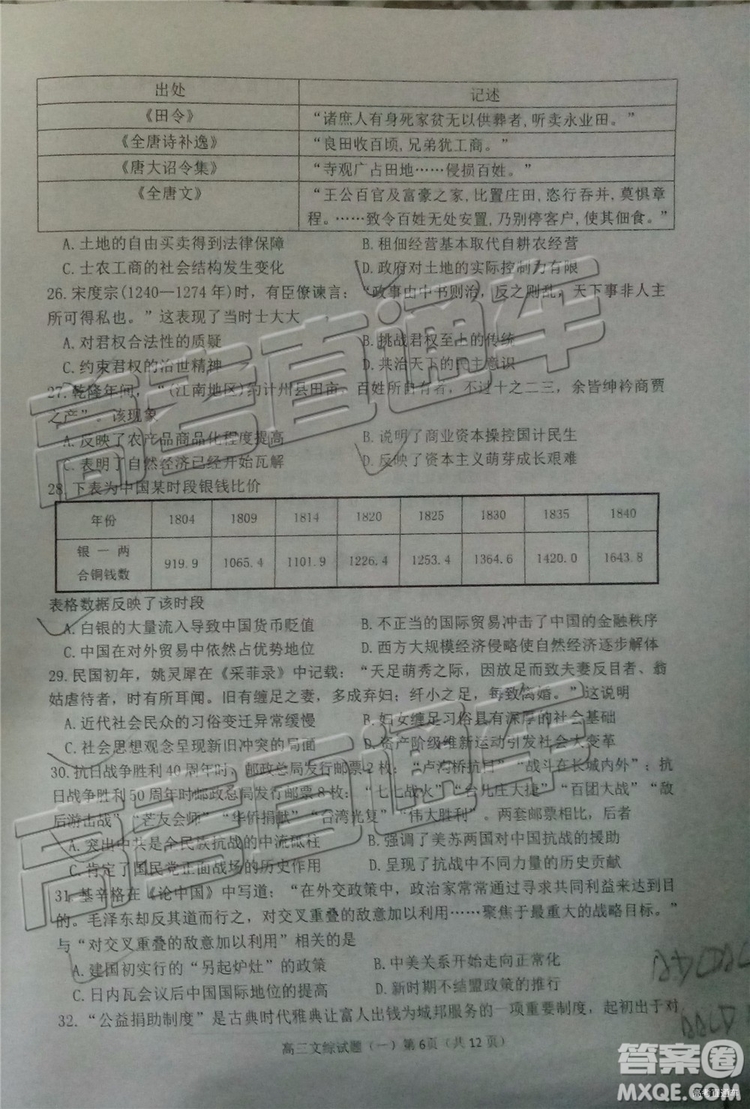 出处 记述
《田令》 “诸庶人有身死家贫无以供葬者,听卖永业田。”
《全唐诗补逸》 “良田收百顷,兄弟犹工商。”
《唐大诏令集》 “寺观广占田地……侵损百姓。”
《全唐文》 “王公百官及富豪之家,比置庄田,恣行吞并,莫惧章
程。……致令百姓无处安置,乃别停客户,使其佃食。”
A.土地的自由买卖得到法律保障 B.租佃经营基本取代自耕农经营
C.士农工商的社会结构发生变化 D.政府对土地的实际控制力有限
26.宋度宗(1240—1274年)时，有臣僚谏言：“政事由中书则治，反之则乱，天下事非人主
所可得私也。”这表现了当时士大夫
A.对君权合法性的质疑 B.挑战君权至上的传统
C.约束君权的治世精神 D.共治天下的民主意识
27.乾隆年间，“(江南地区)约计州县田亩，百姓所自有者，不过十之二三，余皆绅衿商贾
之产”。该现象
A.反映了农产品商品化程度提高 B.说明了商业资本操控国计民生
C.表明了自然经济已经开始瓦解 D.反映了资本主义萌芽成长艰难
28.下表为中国某时段银钱比价
年份 1804 1809 1814 1820 1825 1830 1835 1840
银一两
合铜钱数 919.9 1065.4 1101.9 1226.4 1253.4 1364.6 1420.0 1643.8
表格数据反映了该时段
A.白银的大量流入导致中国货币贬值 B.不正当的国际贸易冲击了中国的金融秩序
C.中国在对外贸易中依然占优势地位 D.西方大规模经济侵略使自然经济逐步解体
29.民国初年，姚灵犀在《采菲录》中记载：“天足萌秀之际，因天足而致夫妻反目者、翁
姑虐待者，时有所耳闻。旧有缠足之妻，多成弃妇；纤小之足，每致离婚。”这说明
A.近代社会民众的习俗变迁异常缓慢 B.妇女缠足习俗具有深厚的社会基础
C.社会思想观念呈现新旧冲突的局面 D.资产阶级维新运动引发社会大变革
30.抗日战争胜利40周年时，邮政总局发行邮票2枚：“卢沟桥抗日”“战斗在长城内外”；抗
日战争胜利50周年时邮政总局发行邮票8枚：“七七战火”“台儿庄大捷”“百团大战”“敌
后游击战”“芒友会师”“华侨捐献”“台湾光复”“伟大胜利”。两套邮票都
A.突出中共是全民族抗战的中流砥柱 B.强调了美苏两国对中国抗战的援助
C.肯定了国民党正面战场的历史作用 D.呈现了抗战中不同力量的历史贡献
31.基辛格在《论中国》中写道：“在外交政策中，政治家常常通过寻求共同利益来达到目
的。毛泽东却反其道而行之，对交叉重叠的敌意加以利用……聚焦于最重大的战略目标。”
与“对交叉重叠的敌意加以利用”相关的是
A.建国初实行的“另起炉灶”的政策 B.中美关系开始走向正常化
C.日内瓦会议后中国国际地位的提高 D.新时期不结盟政策的推行
32.“公益捐助制度”是古典时代雅典让富人出钱为城邦服务的一项重要制度，起初出于对
高三文综试题（一）第6页（共12页）
高考直通车
高考直通车
答案圈
MXQE.COM